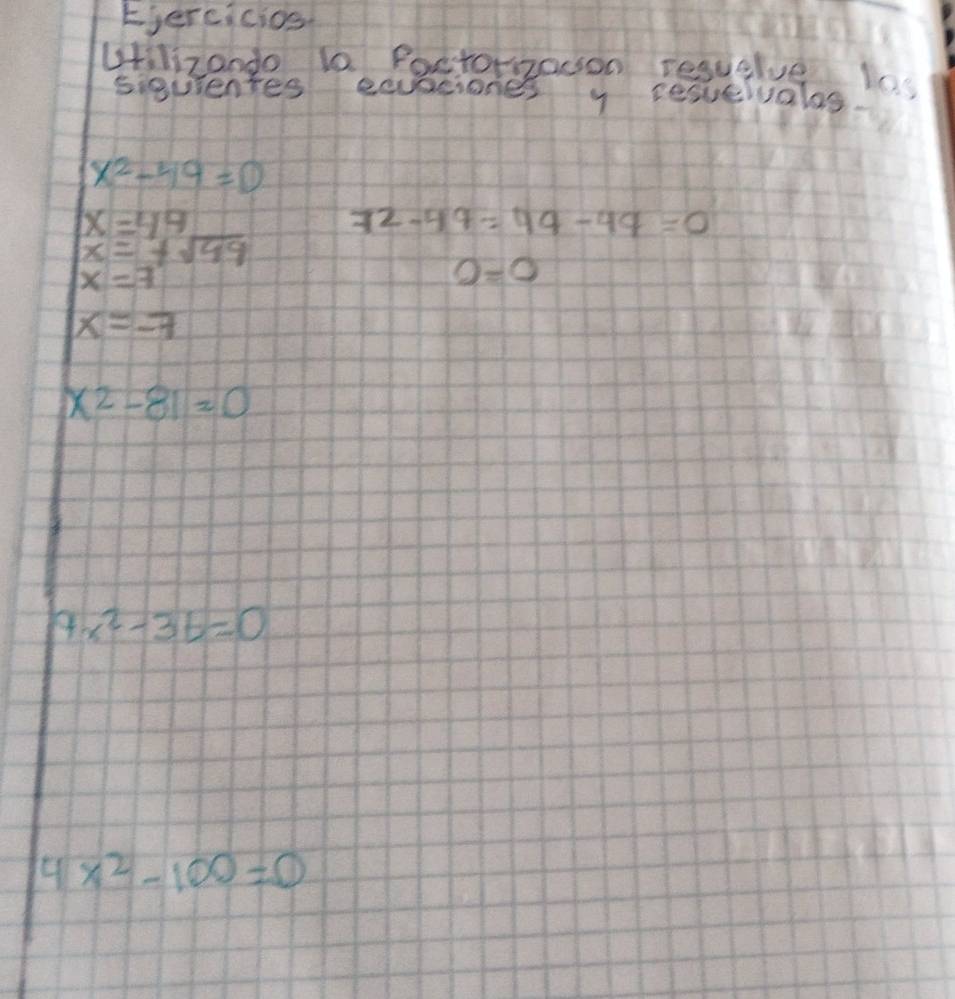 Ejercicios.
Utilizando la factorización resuelve las
siguientes ecuaciones y resuelvalas.
x²-49=0
x=49 7²-49=49-49=0
x=+√49 0=0
x=7
x=-7
x²-81=0
x²-36=0
4x²-100=0